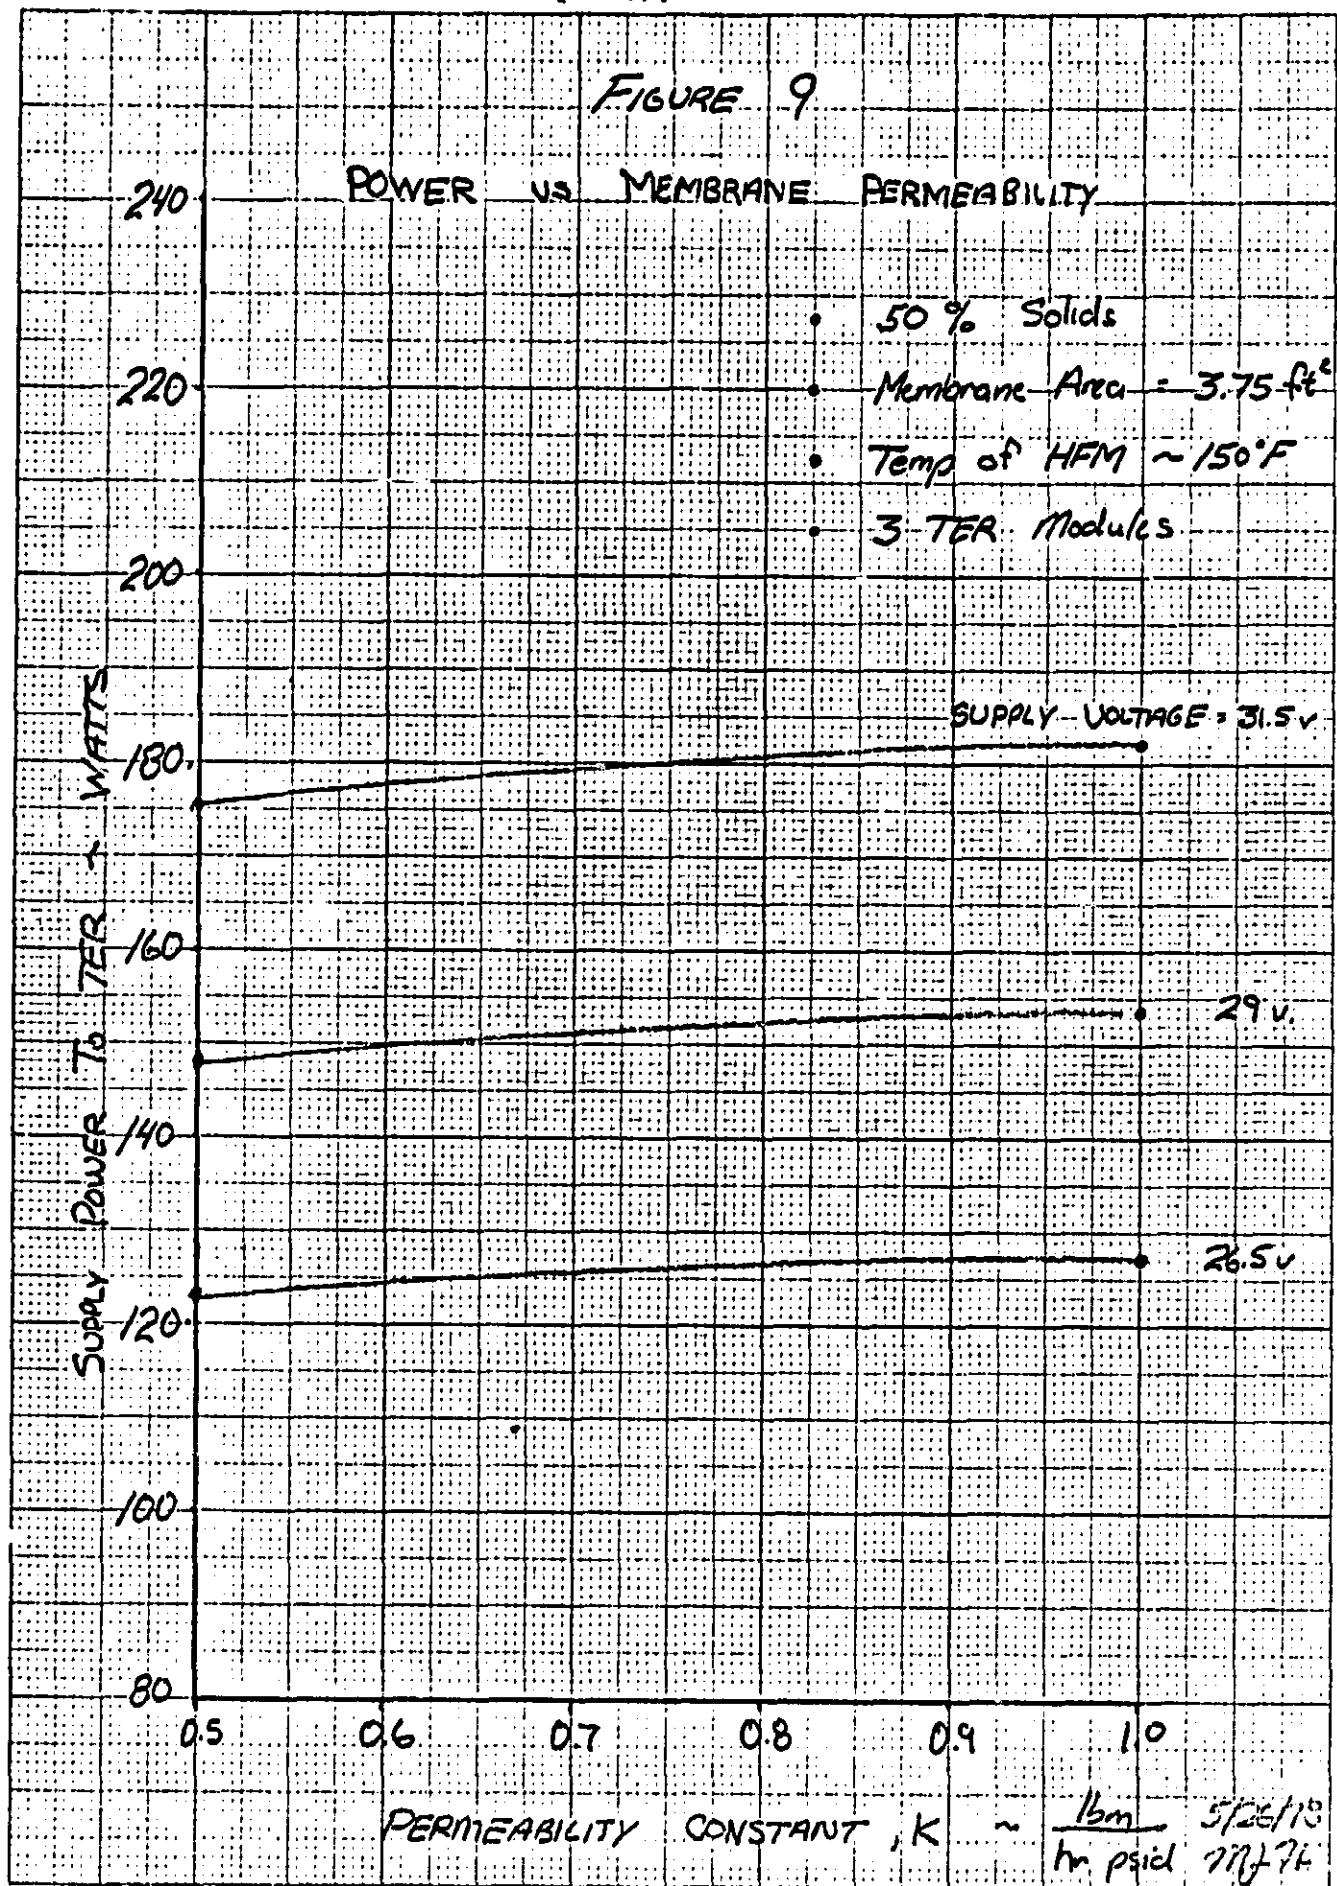 FIGURE 9
POWER vs MEMBRANE PERMEABILITY
• 50 % Solids
• Membrane Area = 3.75 ft²
• Temp of HFM ~ 150°F
• 3 TER Modules
SUPPLY VOLTAGE = 31.5 v
29 v.
26.5 v
SUPPLY POWER TO TER ~ WATTS
240
220
200
180
160
140
120
100
80
0.5 0.6 0.7 0.8 0.9 1.0
PERMEABILITY CONSTANT, K ~ lbm
hr psid